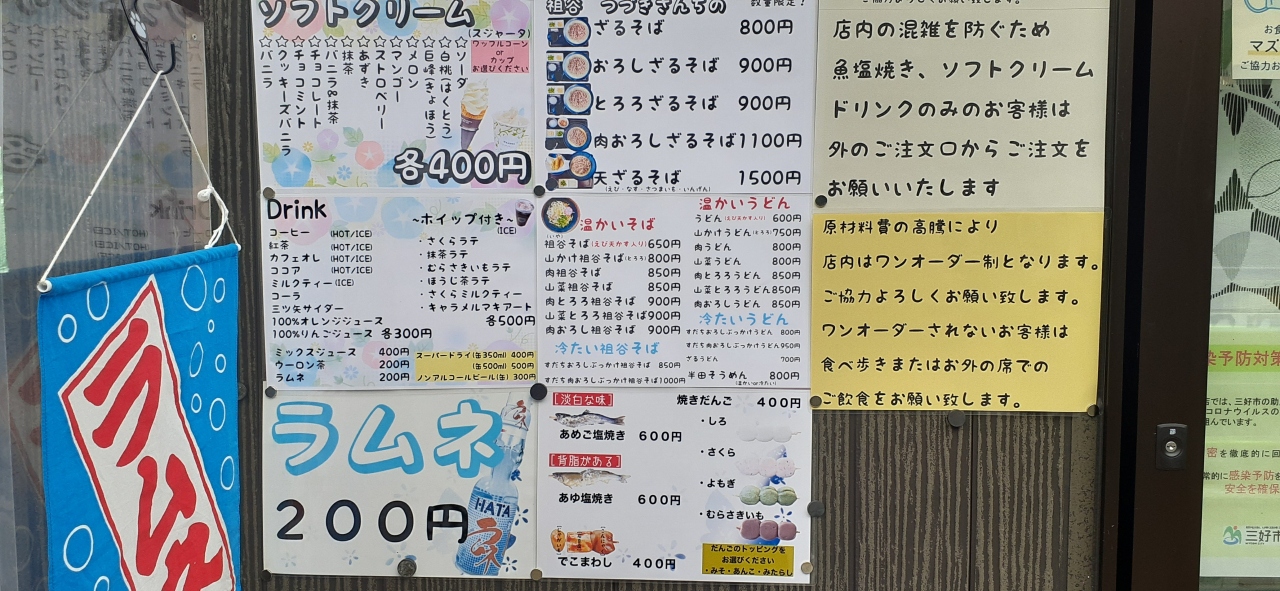 ソフトクリーム
(スジャータ)
ワッフルコーン
or
カップ
お選びください
☆ソーダ
☆白桃(はくとう)
☆巨峰(きょほう)
☆メロン
☆マンゴー
☆ストロベリー
☆あずき
☆抹茶
☆バニラ&抹茶
☆チョコレート
☆チョコミント
☆クッキーズバニラ
☆バニラ
各400円
祖谷 つづきさんちの 数量限定!
ざるそば 800円
おろしざるそば 900円
とろろざるそば 900円
肉おろしざるそば1100円
天ざるそば 1500円
(えび・なす・さつまいも・いんげん)
店内の混雑を防ぐため
魚塩焼き、ソフトクリーム
ドリンクのみのお客様は
外のご注文口からご注文を
お願いいたします
Drink
コーヒー (HOT/ICE)
紅茶 (HOT/ICE)
カフェオレ (HOT/ICE)
ココア (HOT/ICE)
ミルクティー(ICE)
コーラ
三ツ矢サイダー
100%オレンジジュース
100%りんごジュース 各300円
ミックスジュース 400円
ウーロン茶 200円
ラムネ 200円
~ホイップ付き~
(ICE)
・さくらラテ
・抹茶ラテ
・むらさきいもラテ
・ほうじ茶ラテ
・さくらミルクティー
・キャラメルマキアート
各500円
スーパードライ(缶350ml) 400円
(缶500ml) 500円
ノンアルコールビール(缶) 300円
温かいそば
祖谷そば(えび天かす入り)650円
(いや)
山かけ祖谷そば(とろろ)800円
肉祖谷そば 850円
山菜祖谷そば 850円
肉とろろ祖谷そば 900円
山菜とろろ祖谷そば900円
肉おろし祖谷そば 900円
冷たい祖谷そば
すだちおろしぶっかけ祖谷そば 850円
すだち肉おろしぶっかけ祖谷そば1000円
温かいうどん
うどん(えび天かす入り) 600円
山かけうどん(とろろ)750円
肉うどん 800円
山菜うどん 800円
肉とろろうどん 850円
山菜とろろうどん850円
肉おろしうどん 850円
冷たいうどん
すだちおろしぶっかけうどん 800円
すだち肉おろしぶっかけうどん950円
ざるうどん 700円
半田そうめん 800円
(温かいor冷たい)
原材料費の高騰により
店内はワンオーダー制となります。
ご協力よろしくお願い致します。
ワンオーダーされないお客様は
食べ歩きまたはお外の席での
ご飲食をお願い致します。
ラムネ
200円
HATA
【淡白な味】
あめご塩焼き 600円
【背脂がある】
あゆ塩焼き 600円
でこまわし 400円
焼きだんご 400円
・しろ
・さくら
・よもぎ
・むらさきいも
だんごのトッピングを
お選びください
・みそ・あんこ・みたらし
ラムネ
マス
ご協力お
染予防対策
三好市の助
コロナウイルスの
組んでいます。
密を徹底的に回
常的に感染予防を
安全を確保
三好市